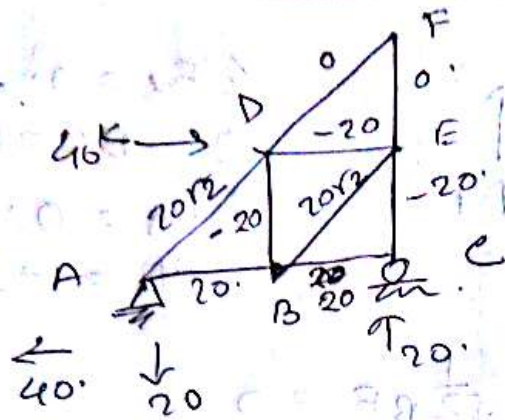 F
0
0.
D
-20
E
40K
20√2
-20
20√2
-20.
A
20.
B
20
20
C
40.
20
20.